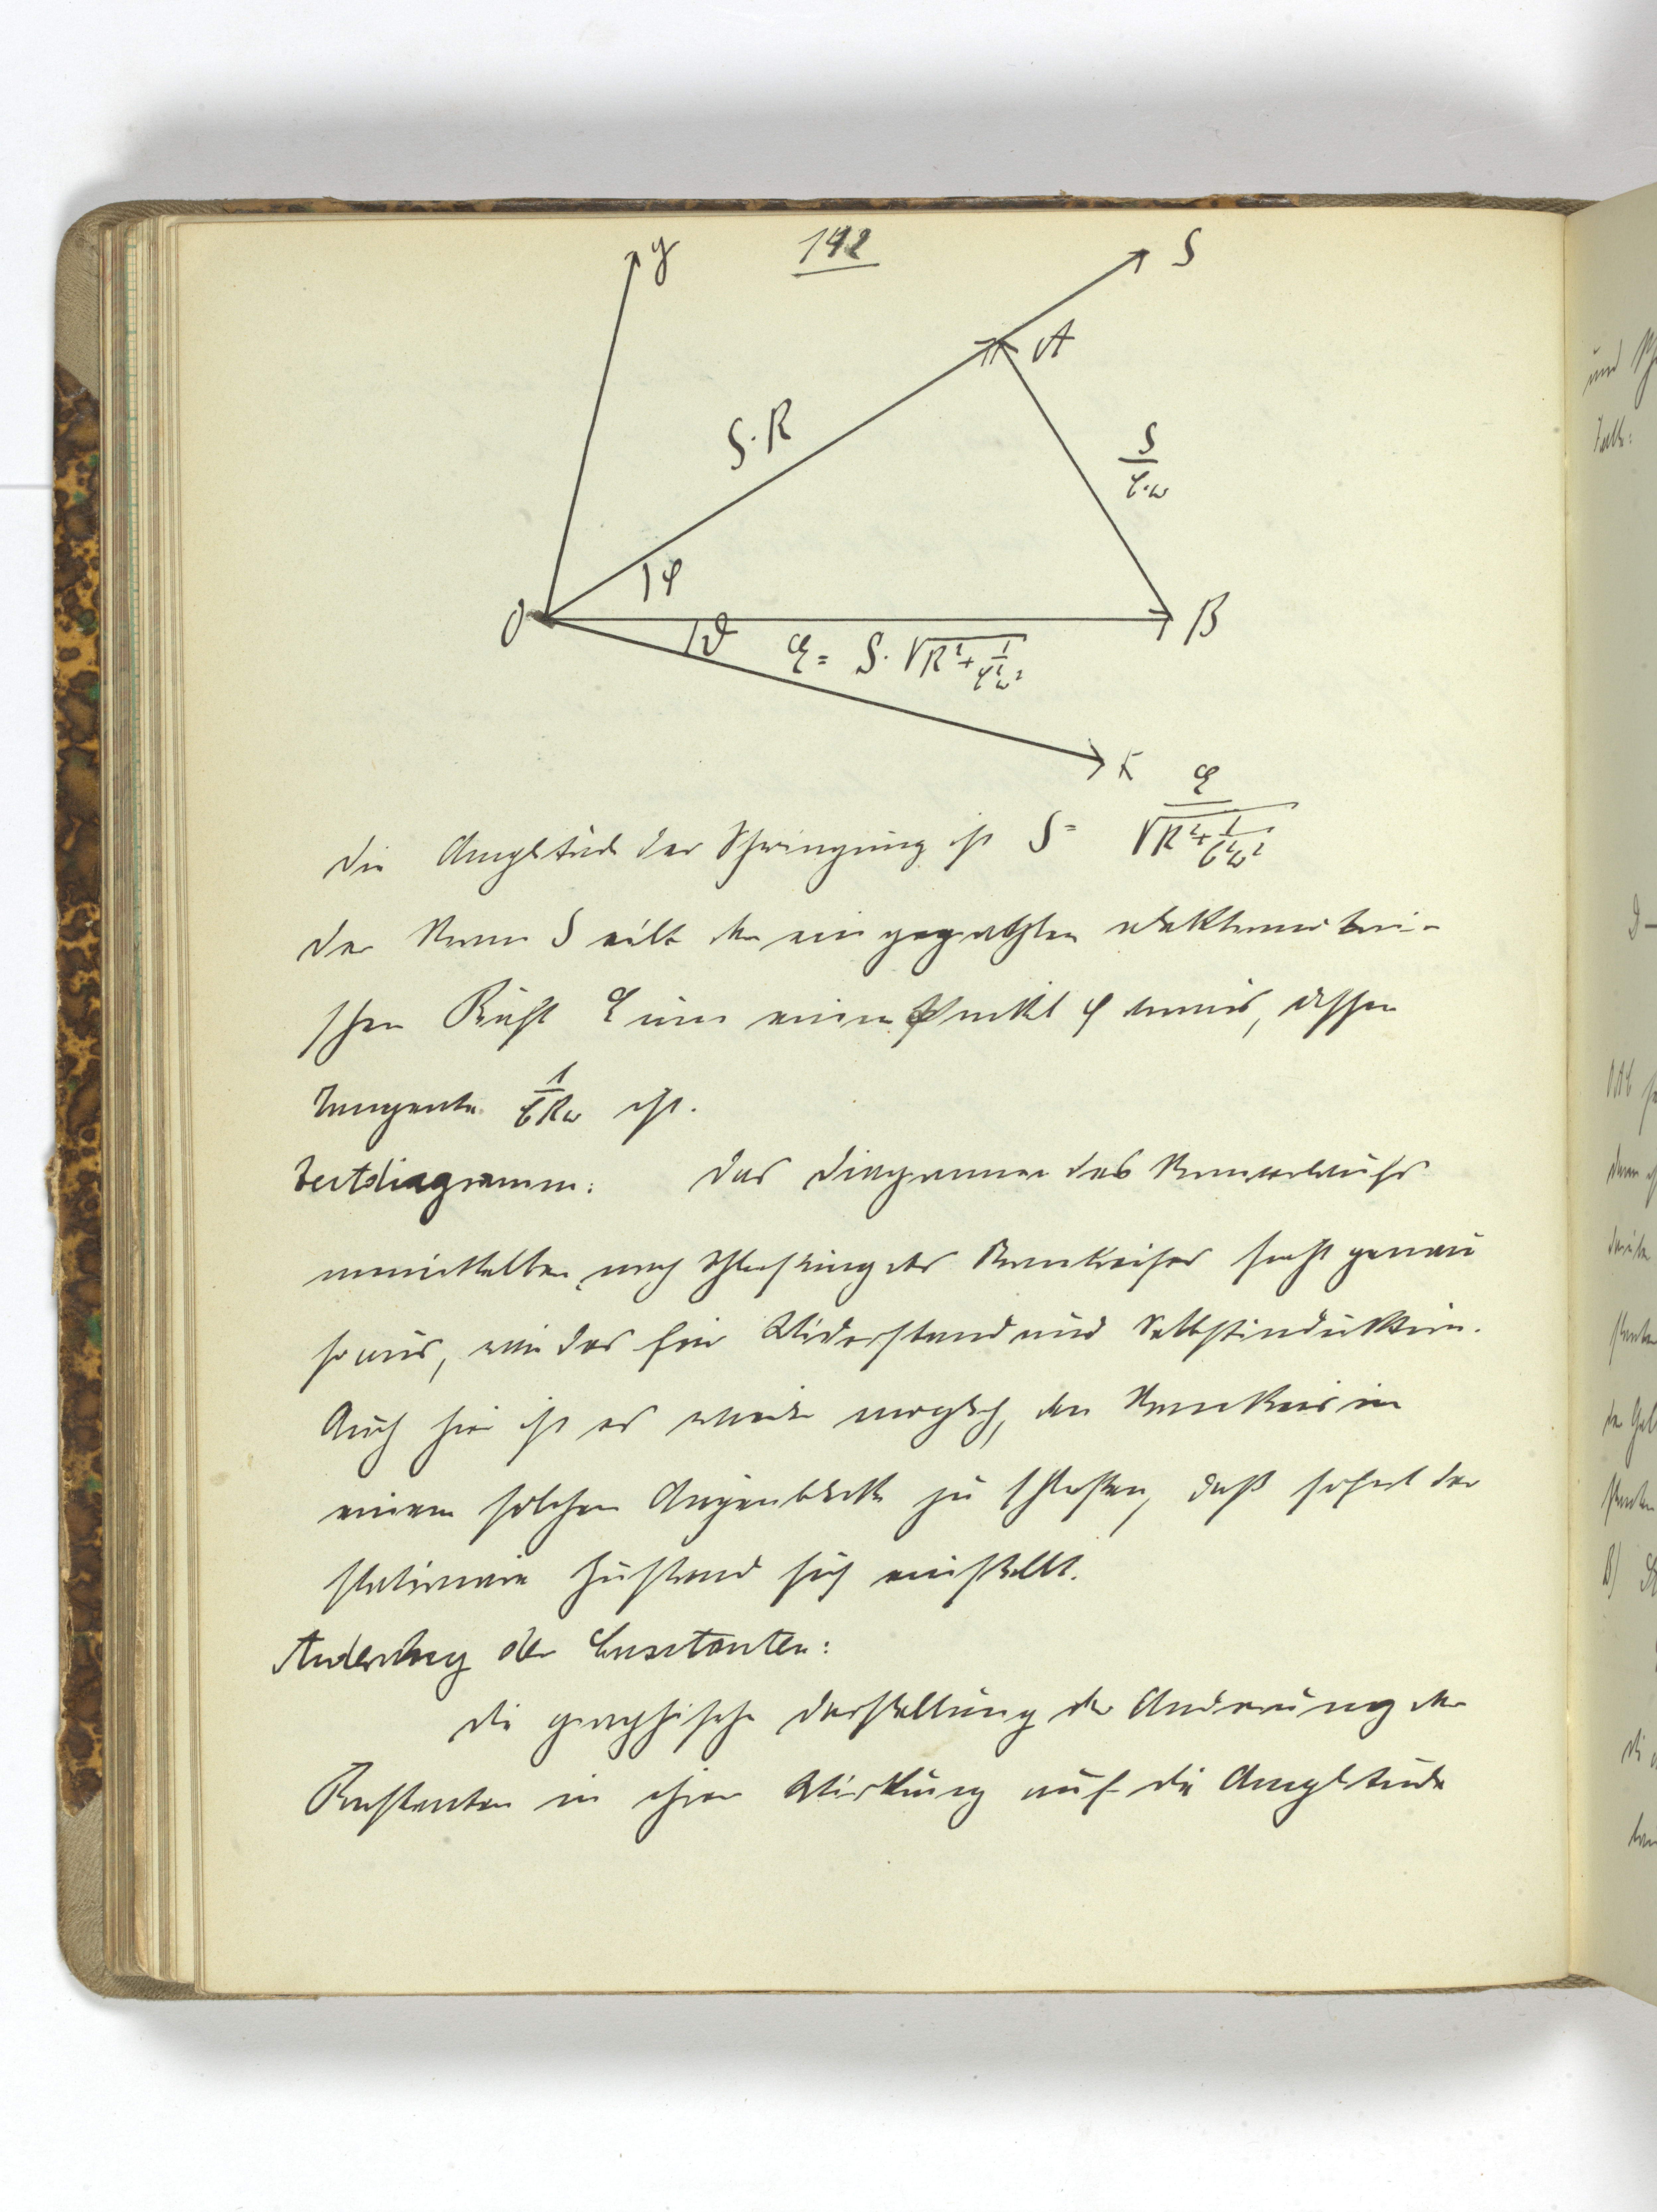 142
y
S
A
S·R
S/(C·ω)
φ
O
B
ϑ
E = S·√(R²+1/(C²ω²))
K
Die Amplitude der Schwingung ist S = E/√(R²+1/(C²ω²))
Der Strom S eilt der eingeprägten elektromotori-
schen Kraft E um einen Winkel φ voraus, dessen
Tangente 1/(CRω) ist.
Zeitdiagramm: Das Diagramm des Stromverlaufs
unmittelbar nach Schließung des Stromkreises sieht genau
so aus, wie das für Widerstand und Selbstinduktion.
Auch hier ist es wieder möglich, den Stromkreis in
einem solchen Augenblick zu schließen, daß sofort der
stationäre Zustand sich einstellt.
Änderung der Constanten:
Die graphische Darstellung der Änderung der
Konstanten in ihrer Wirkung auf die Amplitude